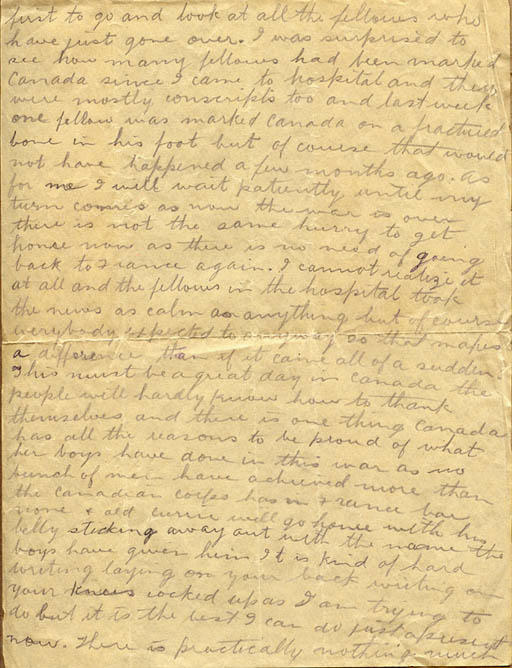 first to go and look at all the fellows who
have just gone over. I was surprised to
see how many fellows had been marked
Canada since I came to hospital and they
were mostly conscripts too and last week
one fellow was marked Canada on a fractured
bone in his foot but of course that would
not have happened a few months ago. As
for me I will wait patiently until my
turn comes as now the war is over
there is not the same hurry to get
home now as there is no need of going
back to France again. I cannot realize it
at all and the fellows in the hospital took
the news as calm as anything but of course
everybody expected to anyway so that makes
a difference than if it came all of a sudden
This must be a great day in Canada the
people will hardly know how to thank
themselves and there is one thing Canada
has all the reasons to be proud of what
her boys have done in this war as no
bunch of men have achieved more than
the Canadian corps has in France bar
none & old Currie will go home with his
belly sticking away out with the name the
boys have given him It is kind of hard
writing laying on your back writing on
your knees cocked up as I am trying to
do but it is the best I can do just at present
now. There is practically nothing much